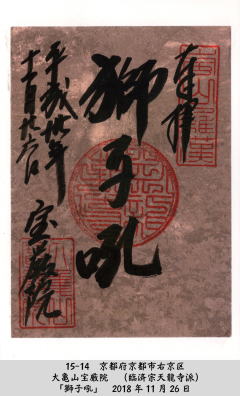 奉拝
獅子吼
平成卅年
十一月廿六日
宝厳院
15-14　京都府京都市右京区
大亀山宝厳院　（臨済宗天龍寺派）
「獅子吼」　2018年11月26日